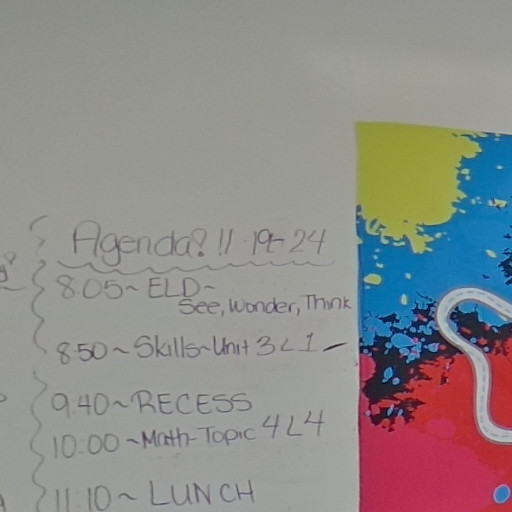 Agenda? 11-19-24
8:05~ ELD~
See, Wonder, Think
8:50~Skills~Unit 3 L 1
9:40~RECESS
10:00~Math-Topic 4 L 4
11:10~ LUNCH